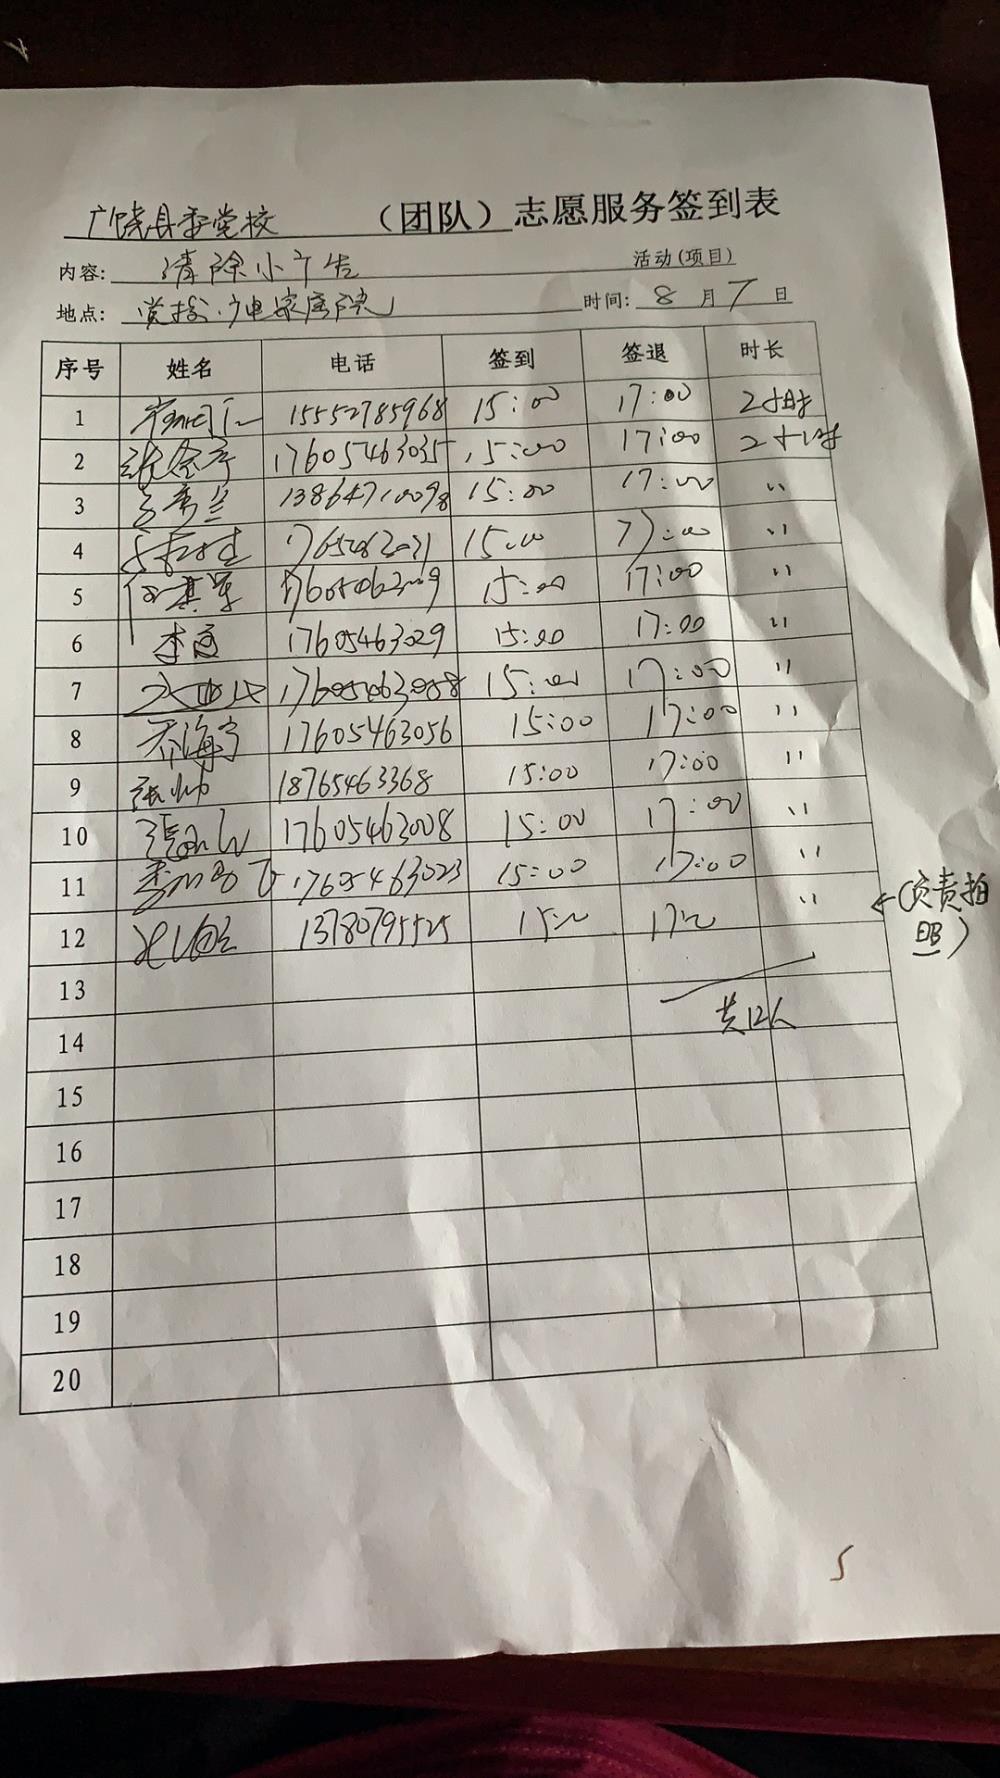 广饶县委党校 （团队）志愿服务签到表
内容: 清除小广告 活动(项目)
地点: 党校、广电家属院 时间: 8 月 7 日
序号 姓名 电话 签到 签退 时长
1 15552785968 15:00 17:00 2小时
2 17605463035 15:00 17:00 2小时
3 13864710098 15:00 17:00 〃
4 15:00 17:00 〃
5 15:00 17:00 〃
6 17605463029 15:00 17:00 〃
7 15:00 17:00 〃
8 乔海宁 17605463056 15:00 17:00 〃
9 张帅 18765463368 15:00 17:00 〃
10 17605463008 15:00 17:00 〃
11 17605463023 15:00 17:00 〃
12 13780795525 15:00 17:00 〃 ←(负责拍照)
13
共12人
14
15
16
17
18
19
20
5